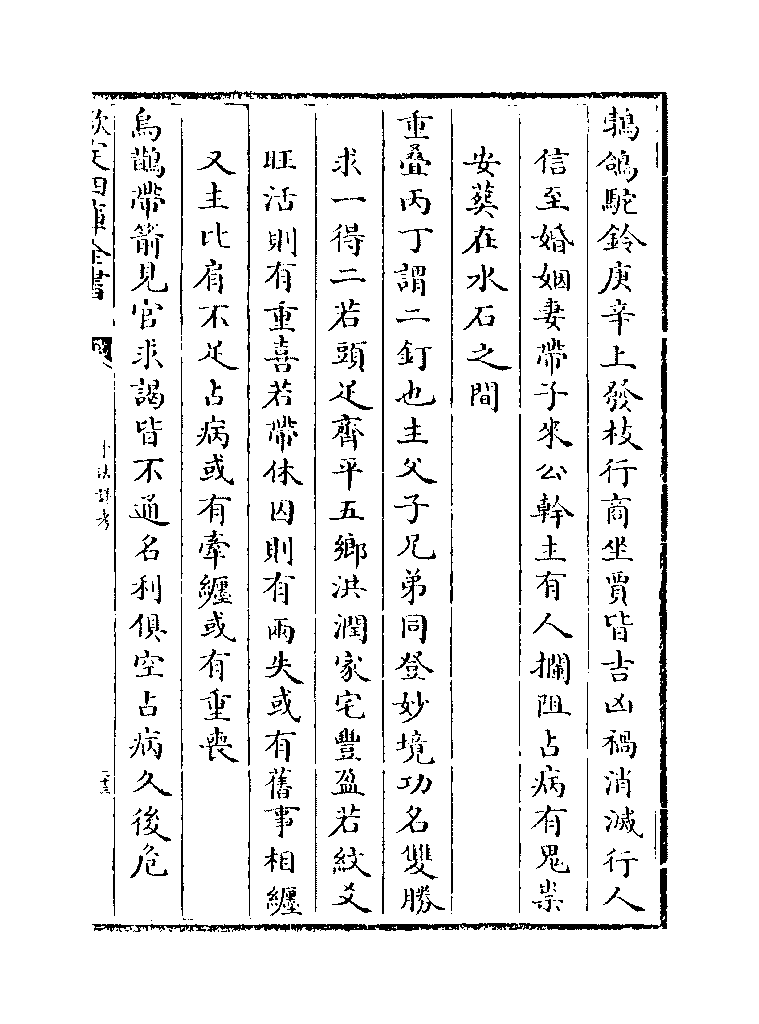 鵓鴿駝鈴庚辛上發枝行商坐賈皆吉凶禍消滅行人
信至婚姻妻帶子來公幹主有人攔阻占病有鬼祟
安葬在水石之間
重疊丙丁謂二釘也主父子兄弟同登妙境功名雙勝
求一得二若頭足齊平五鄉洪潤家宅豐盈若紋爻
旺活則有重喜若帶休囚則有兩失或有舊事相纏
又主比肩不足占病或有牽纏或有重喪
烏鵲帶箭見官求謁皆不通名利俱空占病久後危
欽定四庫全書
卜法詳考